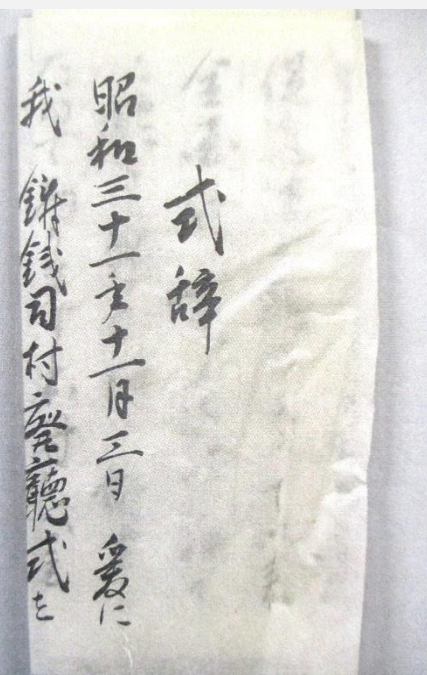 式辞
昭和三十一年十一月三日 爰に
我 鋳銭司村廃廳式を